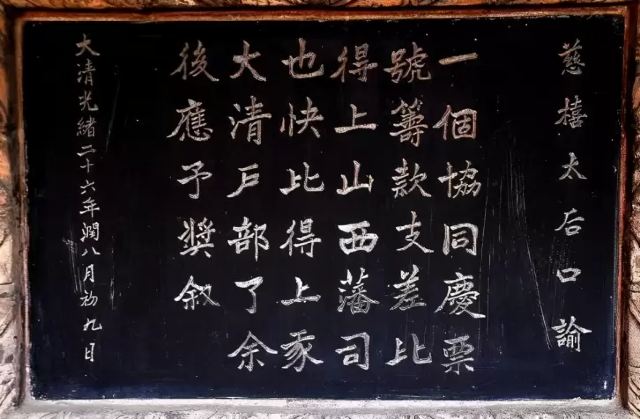 慈禧太后口諭
一個協同慶票
號籌款支差比
得上山西藩司
也快比得上豕
大清戶部了余
後應予獎叙
大清光緒二十六年潤八月初九日